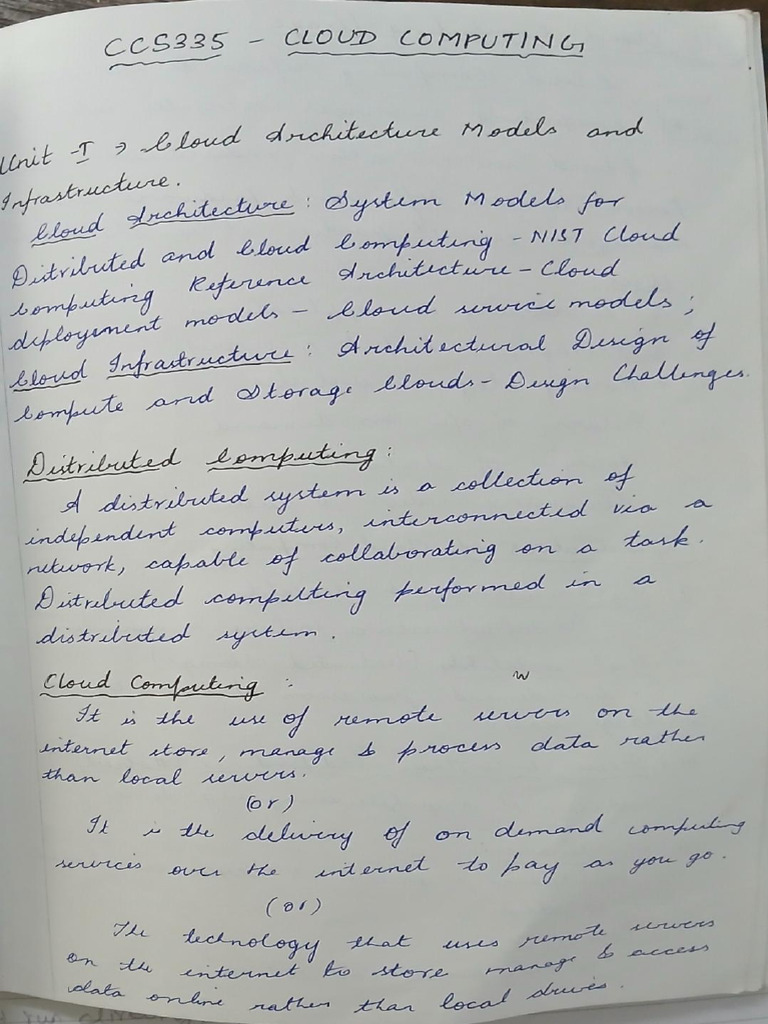 CCS335 - CLOUD COMPUTING
Unit - I → Cloud Architecture Models and
Infrastructure.
Cloud Architecture: System Models for
Distributed and Cloud Computing - NIST Cloud
Computing Reference Architecture - Cloud
deployement models - Cloud service models;
Cloud Infrastructure: Architectural Design of
Compute and Storage Clouds - Design Challenges.
Distributed Computing:
A distributed system is a collection of
independent computers, interconnected via a
network, capable of collaborating on a task.
Distributed computing performed in a
distributed system.
Cloud Computing :
It is the use of remote servers on the
internet store, manage & process data rather
than local servers.
(or)
It is the delivery of on demand computing
services over the internet to pay as you go.
(or)
The technology that uses remote servers
on the internet to store manage & access
data online rather than local drives.